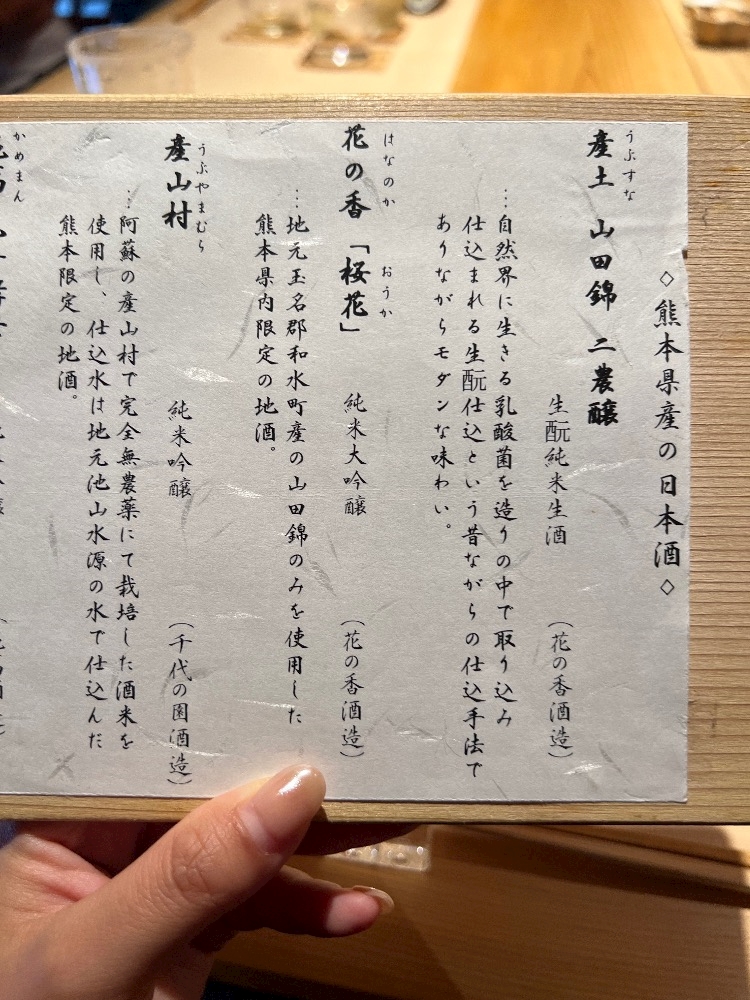 ◇熊本県産の日本酒◇
うぶすな
産土 山田錦 二農醸
生酛純米生酒 (花の香酒造)
…自然界に生きる乳酸菌を造りの中で取り込み
仕込まれる生酛仕込という昔ながらの仕込手法で
ありながらモダンな味わい。
はなのか おうか
花の香「桜花」 純米大吟醸 (花の香酒造)
…地元玉名郡和水町産の山田錦のみを使用した
熊本県内限定の地酒。
うぶやまむら
産山村 純米吟醸 (千代の園酒造)
…阿蘇の産山村で完全無農薬にて栽培した酒米を
使用し、仕込水は地元池山水源の水で仕込んだ
熊本限定の地酒。
かめまん